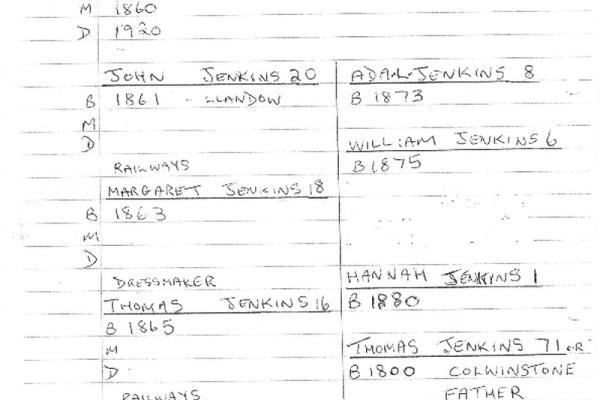 M 1860
D 1920
JOHN JENKINS 20
B 1861 - LLANDOW
M
D
RAILWAYS
MARGARET JENKINS 18
B 1863
M
D
DRESSMAKER
THOMAS JENKINS 16
B 1865
M
D
RAILWAYS
ADA.L. JENKINS 8
B 1873
WILLIAM JENKINS 6
B 1875
HANNAH JENKINS 1
B 1880
THOMAS JENKINS 71 OR
B 1800 COLWINSTONE
FATHER